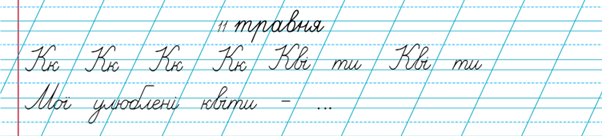 11 травня
Кк Кк Кк Кк Кві ти Кві ти
Мої улюблені квіти - ...